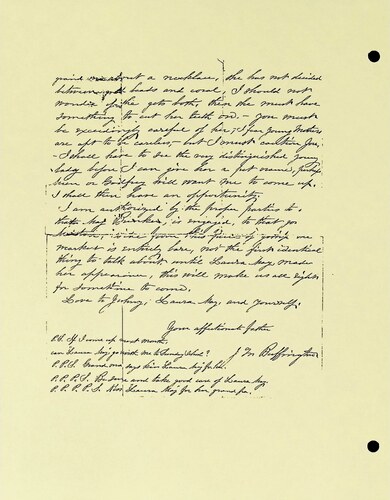 about a necklace, she has not decided
between gold beads and coral, I should not
wonder if she gets both, then she must have
something to cut her teeth on - you must
be exceedingly careful of her, I fear young Mothers
are apt to be careless, but I must caution you,
- I shall have to see the very distinguished young
Lady before I can give her a pet name,
will want me to come up.
I shall then have an opportunity.
I am authorized by the proper parties to
is engaged, to that
this piece of gossip our
market is entirely bare, not the first identical
thing to talk about until Laura May made
her appearance, this will make us all right
for sometime to come.
Love to Johny, Laura May, and yourself.
Your affectionate father
J M Buffington
P.S. If I come up next month.
can Laura May go with me to Sunday School?
P.P.S. Grand ma says Kiss Laura May for her.
P.P.P.S. Be sure and take good care of Laura May.
P.P.P.P.S. Kiss Laura May for her grandpa.